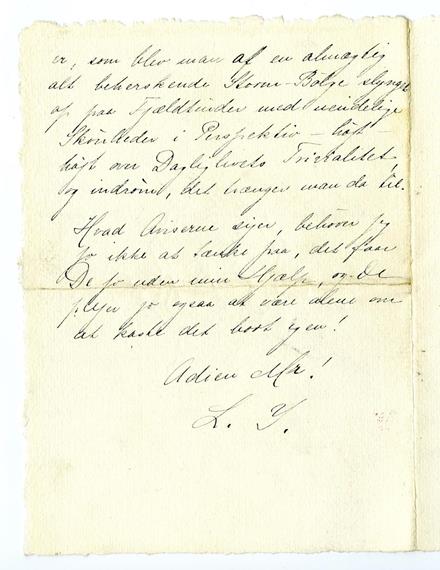 er, som blev man af en almægtig
alt beherskende Storm-Bølge slynget
op paa Fjældtinder med uendelige
Skönheder i Perspektiv – högt –
högt over Dagliglivets Trivialitet,
og indröm, det trænger man da til.
Hvad Aviserne siger, behöver jeg
jo ikke at tænke paa, det faar
De jo uden min Hjælp, og De
plejer jo ogsaa at være alene om
at kaste det bort igen!
Adieu Mr!
L. Y.